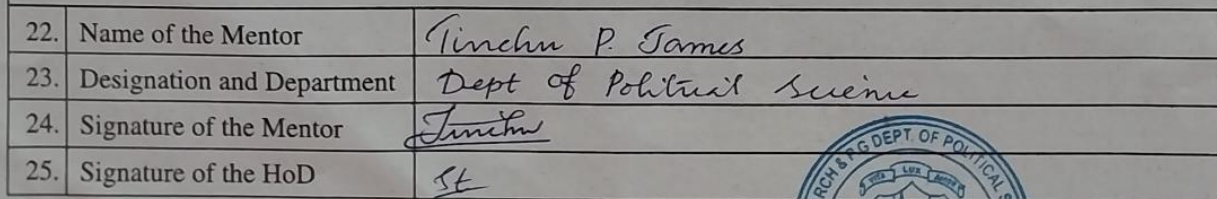 22. Name of the Mentor Tinchu P. James
23. Designation and Department Dept of Political Science
24. Signature of the Mentor Tinchu
25. Signature of the HoD
RCH & PG DEPT. OF POLITICAL S
VITA LUX